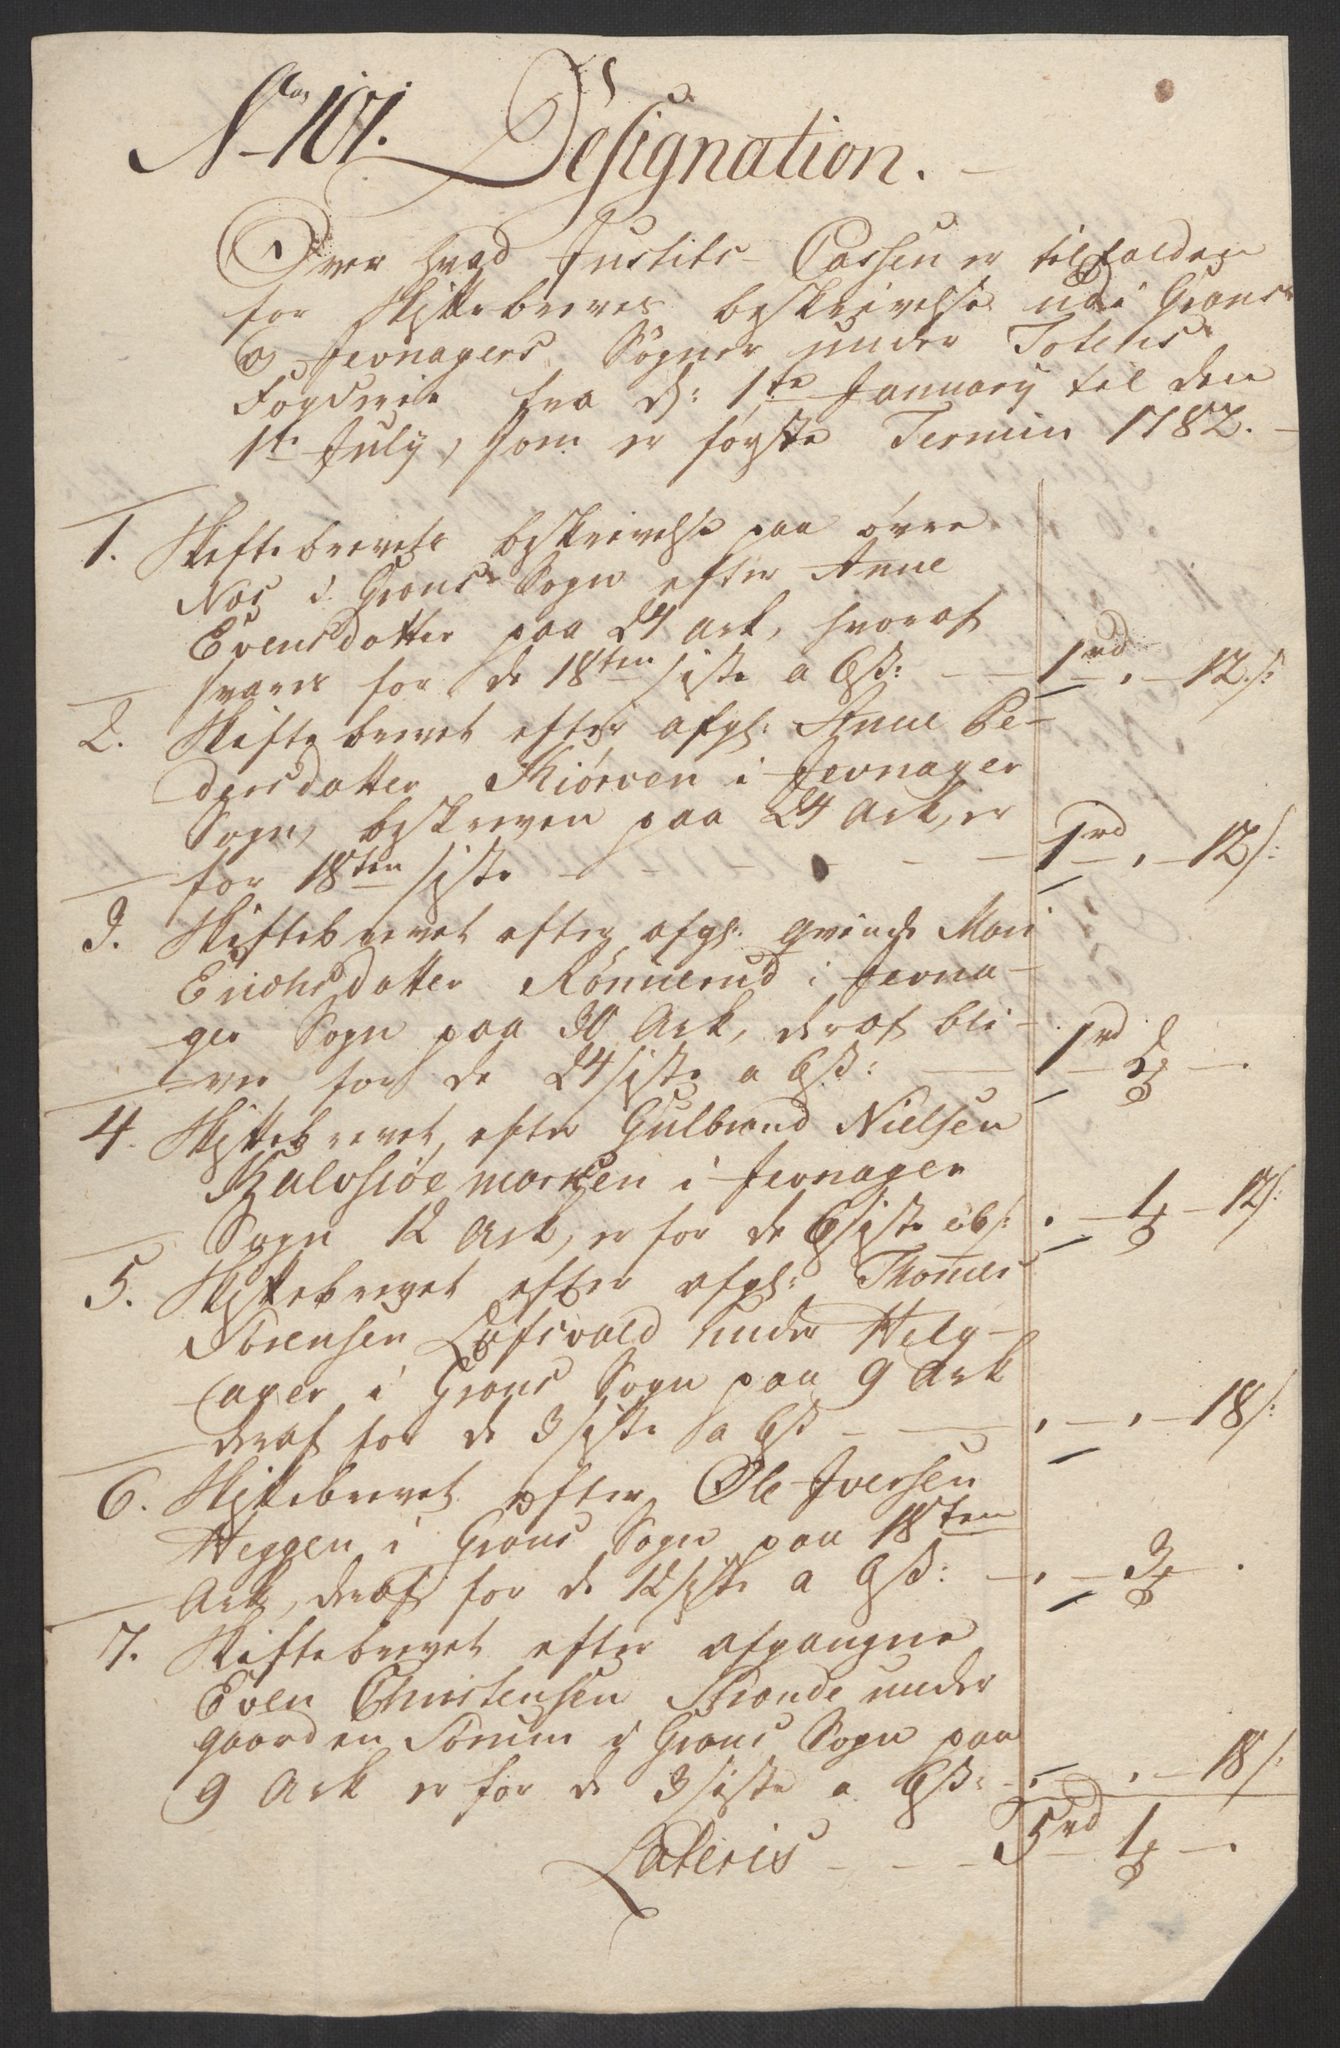 No 101. Designation.
Over hvad Justits-Cassen er tilfalden
for Skiftebreves beskrivelse udi Grans
og Jevnagers Sogner under Totens
Fogderie fra d: 1te January til den
1te July, som er første Termin 1782.
1. Skiftebrevets beskrivelse paa øvre
Næs i Grans Sogn efter Anne
Evensdatter paa 24 ark, hvoraf
svares for de 18ten siste a 6s: 1rd . 12s:
2. Skifte brevet efter afgl: Anne Pe-
dersdatter Kiørven i Jevnager
Sogn, beskreven paa 24 Ark, er
for 18ten siste 1rd . 12s:
3. Skiftebrevet efter afgl: qvinde Mari
Erichsdatter Rønnerud i Jevna-
ger Sogn paa 30 Ark, deraf bli-
ver for de 24 siste a 6s: 1rd 2 .
4. Skiftebrevet efter Gulbrand Nielsen
Kalvsiøe marken i Jevnager
Sogn 12 Ark, er for de 6 siste a 6s: . 1 12s:
5. Skiftebrevet efter afgl: Thomes
Sørensen Løfsvald under Helg-
ager i Grans Sogn paa 9 Ark
deraf for de 3 siste a 6s . . 18s:
6. Skiftebrevet efter Ole Iversen
Heggen i Grans Sogn paa 18ten
Ark, deraf for de 12 siste a 6s: . 3 .
7. Skiftebrevet efter afgangne
Even Christensen Strande under
gaarden Sørum i Grans Sogn paa
9 Ark er for de 3 siste a 6s: . . 18s:
Lateris 5rd 1 .